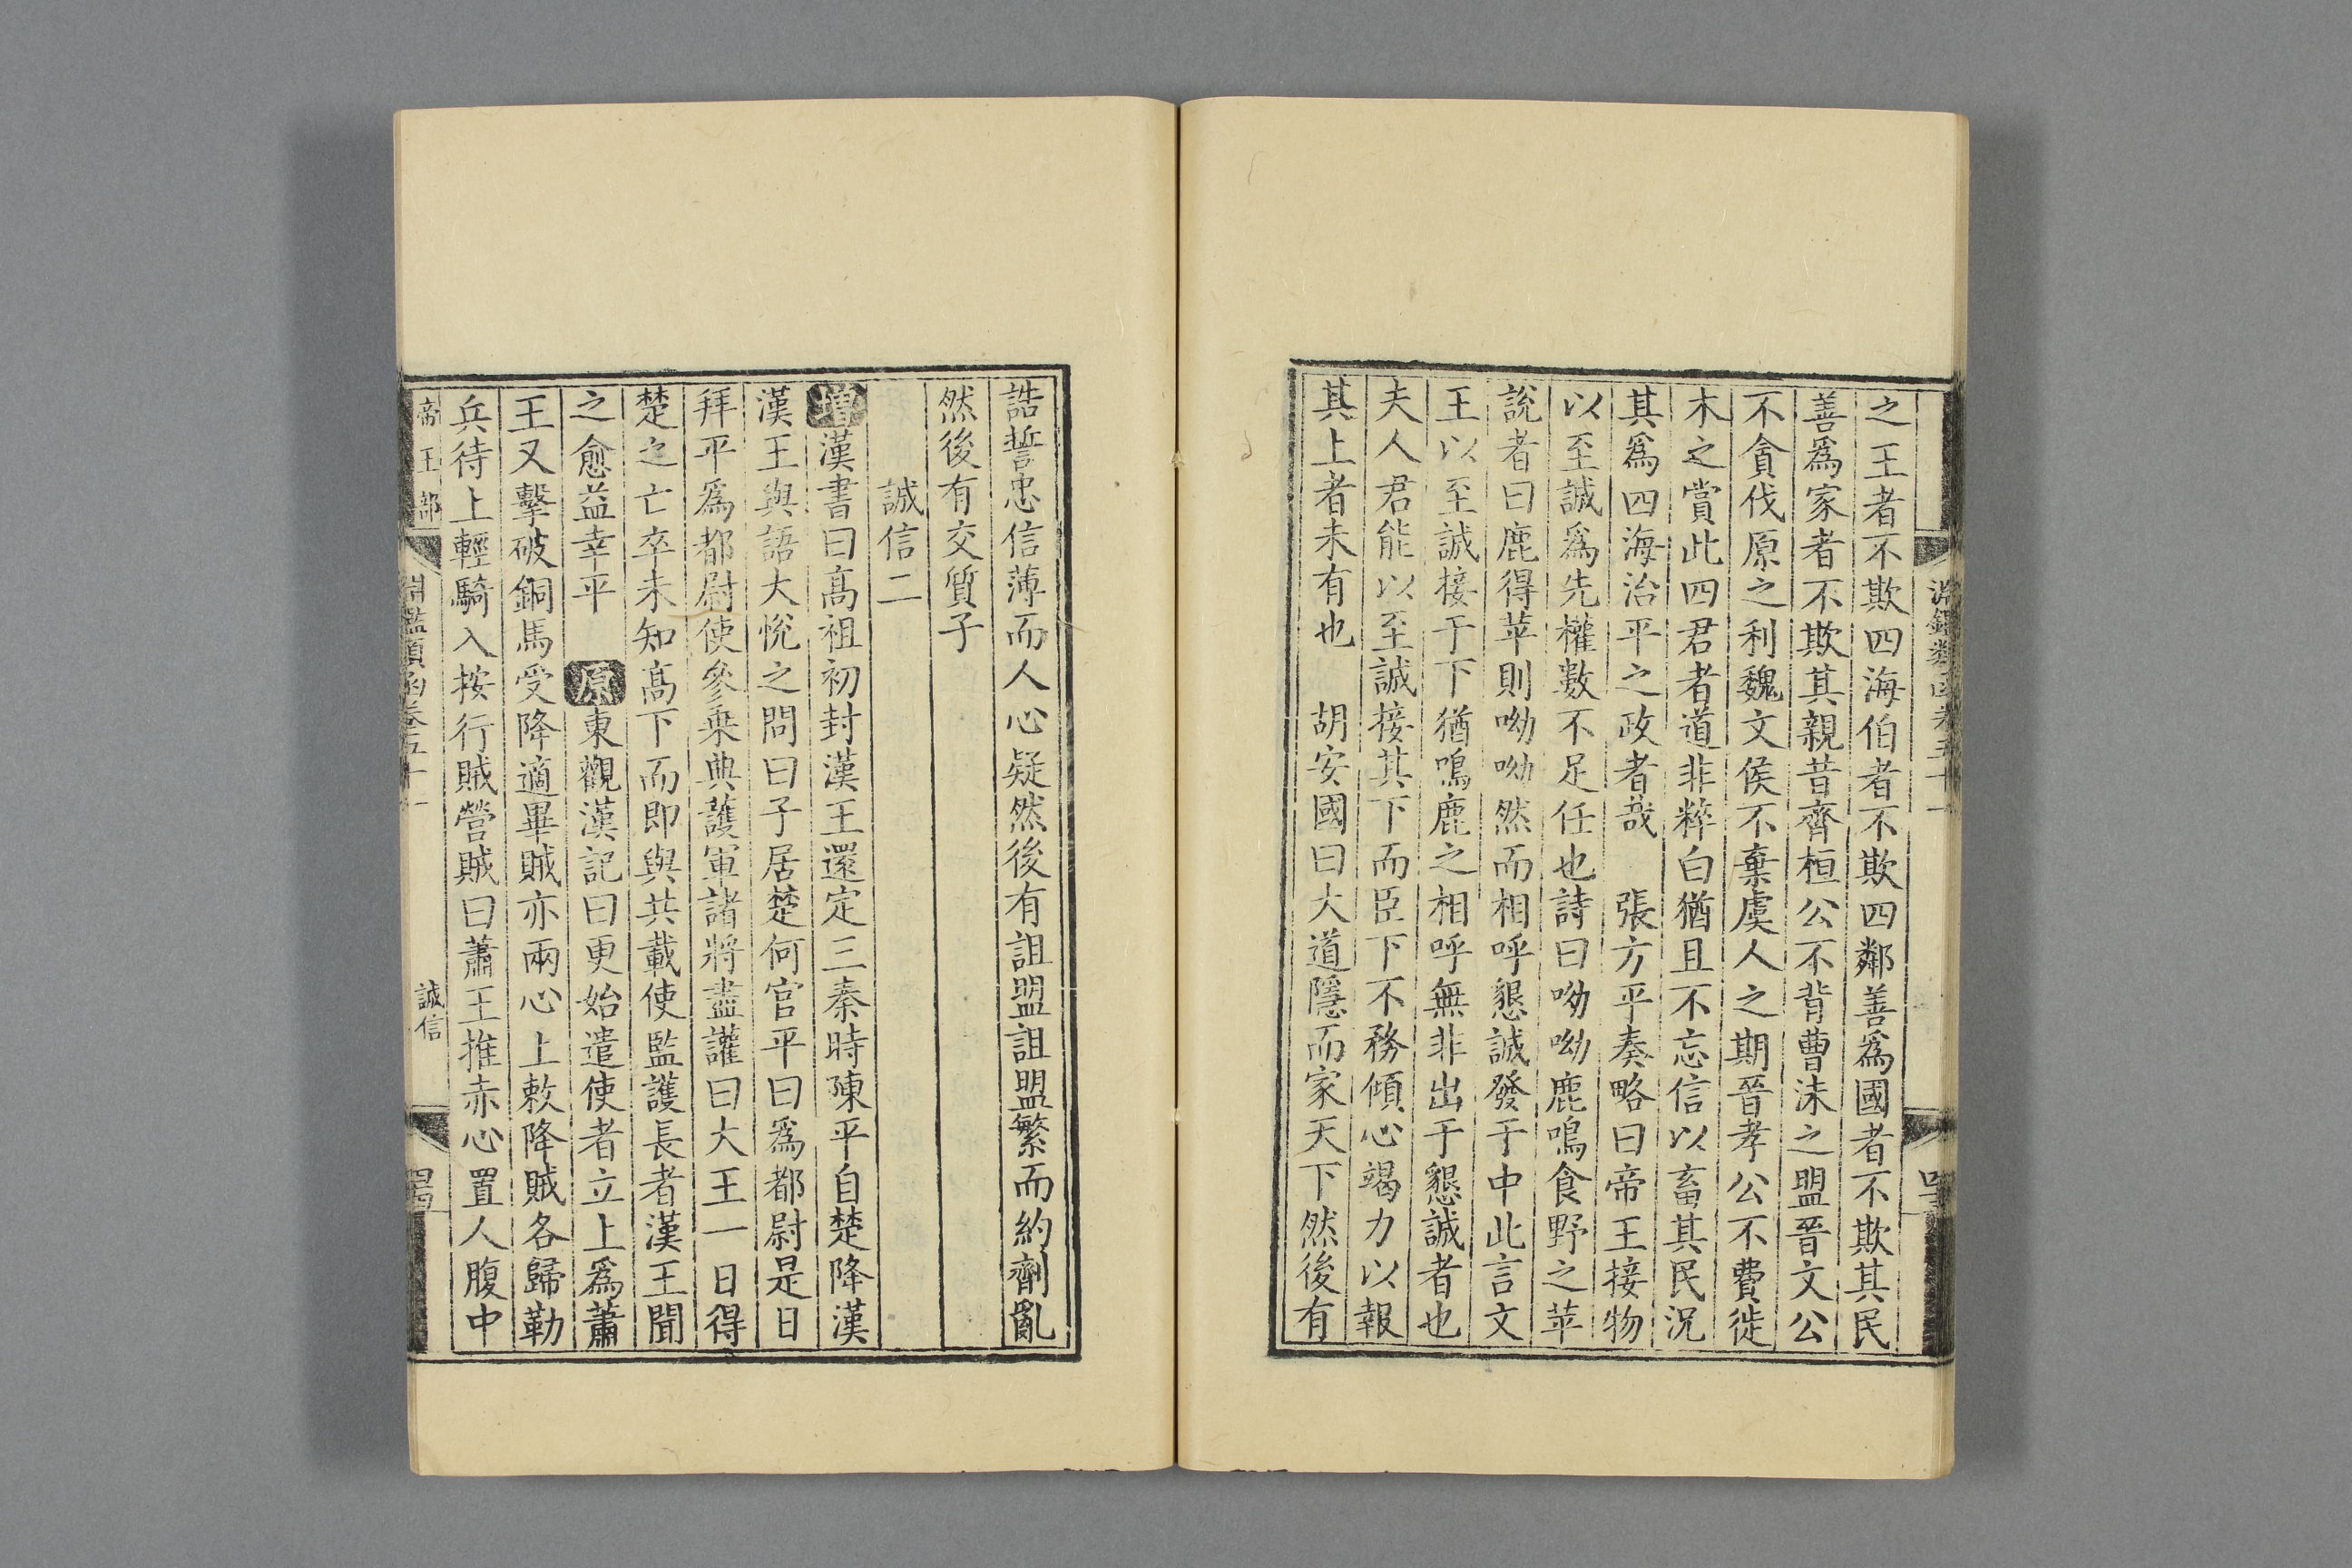 之王者不欺四海伯者不欺四鄰善爲國者不欺其民
善爲家者不欺其親昔齊桓公不背曹沬之盟晉文公
不貪伐原之利魏文侯不棄虞人之期晉孝公不費徙
木之賞此四君者道非粹白猶且不忘信以畜其民況
其爲四海治平之政者哉　張方平奏略曰帝王接物
以至誠爲先權數不足任也詩曰呦呦鹿鳴食野之苹
說者曰鹿得苹則呦呦然而相呼懇誠發于中此言文
王以至誠接于下猶鳴鹿之相呼無非出于懇誠者也
夫人君能以至誠接其下而臣下不務傾心竭力以報
其上者未有也　胡安國曰大道隱而家天下然後有
誥誓忠信薄而人心疑然後有詛盟詛盟繁而約劑亂
然後有交質子
誠信二
增漢書曰高祖初封漢王還定三秦時陳平自楚降漢
漢王與語大悅之問曰子居楚何官平曰爲都尉是日
拜平爲都尉使參乗典護軍諸將盡讙曰大王一日得
楚之亡卒未知高下而即與共載使監護長者漢王聞
之愈益幸平　原東觀漢記曰更始遣使者立上爲蕭
王又擊破銅馬受降適畢賊亦兩心上敕降賊各歸勒
兵待上輕騎入按行賊營賊曰蕭王推赤心置人腹中
帝王部　淵鑑類函卷五十一　誠信